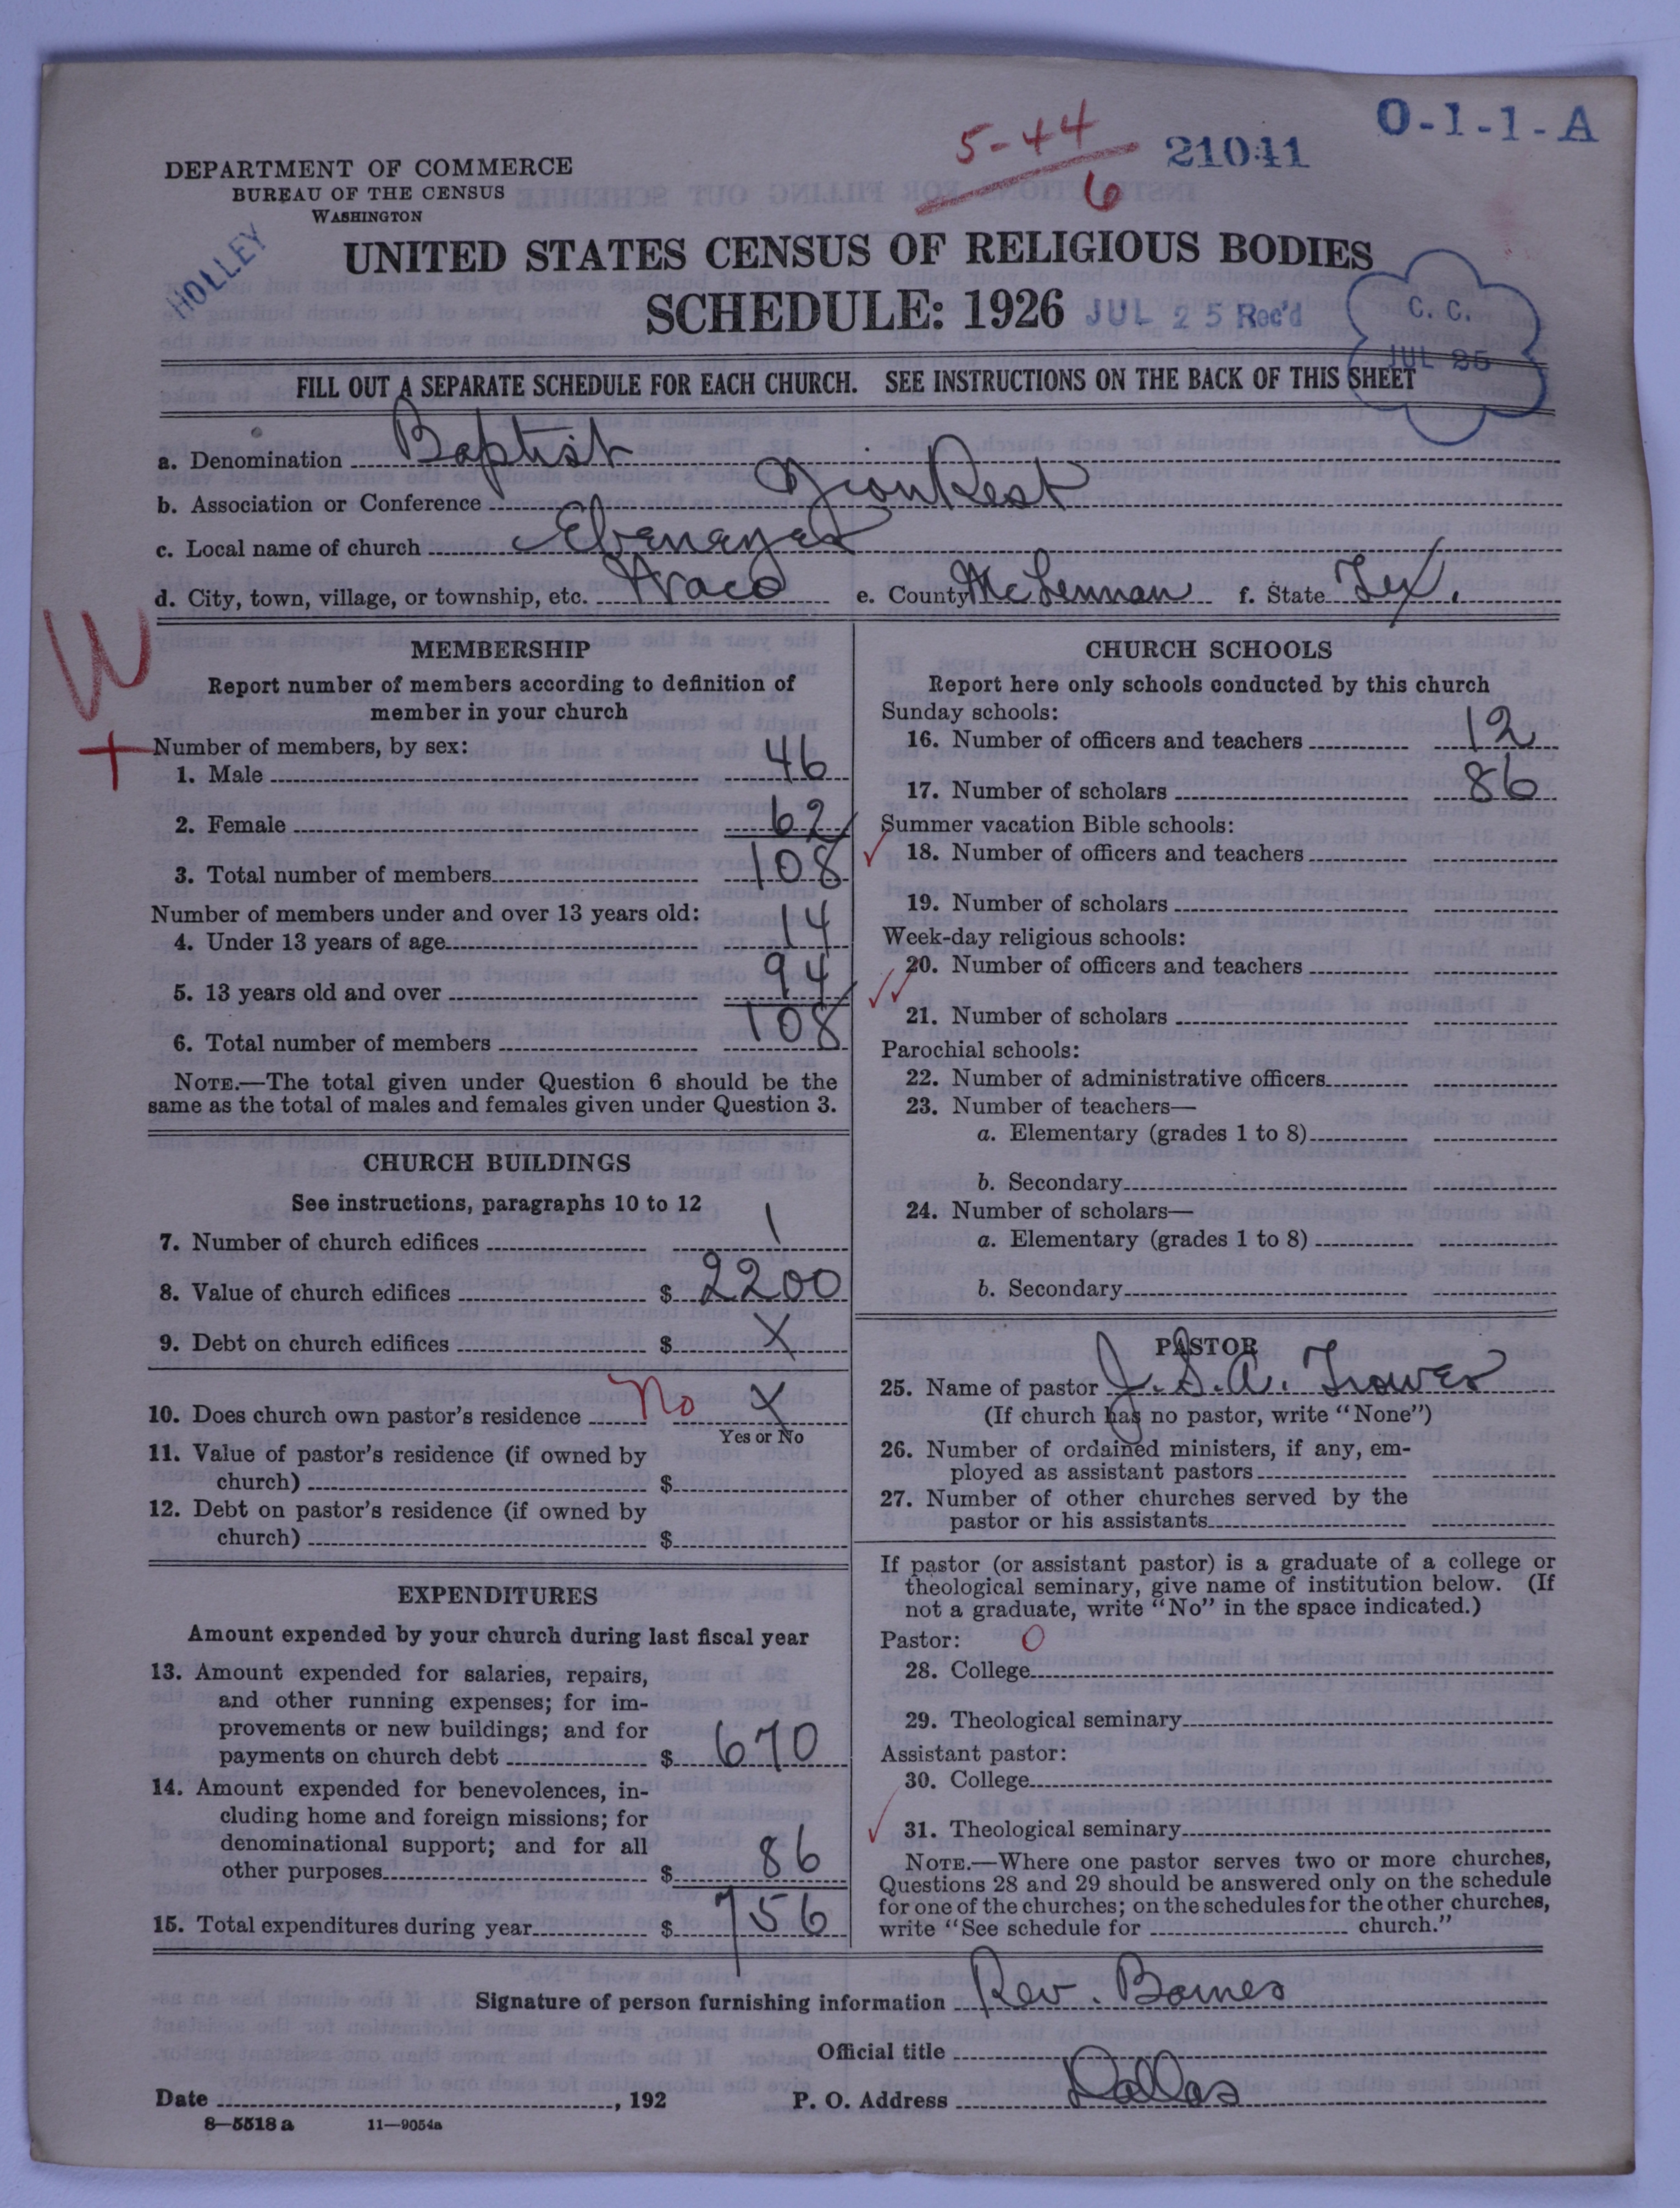 5-44
6
21041
O-1-1-A
DEPARTMENT OF COMMERCE
BUREAU OF THE CENSUS
WASHINGTON
HOLLEY
UNITED STATES CENSUS OF RELIGIOUS BODIES
SCHEDULE: 1926
JUL 25 Rec'd
C. C.
JUL 25
FILL OUT A SEPARATE SCHEDULE FOR EACH CHURCH. SEE INSTRUCTIONS ON THE BACK OF THIS SHEET
a. Denomination Baptist
b. Association or Conference Zion Rest
c. Local name of church Ebenezer
d. City, town, village, or township, etc. Waco e. County McLennan f. State Tex.
W
+
MEMBERSHIP
Report number of members according to definition of
member in your church
Number of members, by sex:
1. Male 46
2. Female 62
3. Total number of members 108
Number of members under and over 13 years old:
4. Under 13 years of age 14
5. 13 years old and over 94
6. Total number of members 108
NOTE.—The total given under Question 6 should be the
same as the total of males and females given under Question 3.
CHURCH BUILDINGS
See instructions, paragraphs 10 to 12
7. Number of church edifices 1
8. Value of church edifices $ 2200
9. Debt on church edifices $ X
10. Does church own pastor's residence No X
Yes or No
11. Value of pastor's residence (if owned by
church) $
12. Debt on pastor's residence (if owned by
church) $
EXPENDITURES
Amount expended by your church during last fiscal year
13. Amount expended for salaries, repairs,
and other running expenses; for im-
provements or new buildings; and for
payments on church debt $ 670
14. Amount expended for benevolences, in-
cluding home and foreign missions; for
denominational support; and for all
other purposes $ 86
15. Total expenditures during year $ 756
CHURCH SCHOOLS
Report here only schools conducted by this church
Sunday schools:
16. Number of officers and teachers 12
17. Number of scholars 86
Summer vacation Bible schools:
18. Number of officers and teachers
19. Number of scholars
Week-day religious schools:
20. Number of officers and teachers
21. Number of scholars
Parochial schools:
22. Number of administrative officers
23. Number of teachers—
a. Elementary (grades 1 to 8)
b. Secondary
24. Number of scholars—
a. Elementary (grades 1 to 8)
b. Secondary
PASTOR
25. Name of pastor J. S. A. Trower
(If church has no pastor, write "None")
26. Number of ordained ministers, if any, em-
ployed as assistant pastors
27. Number of other churches served by the
pastor or his assistants
If pastor (or assistant pastor) is a graduate of a college or
theological seminary, give name of institution below. (If
not a graduate, write "No" in the space indicated.)
Pastor: 0
28. College
29. Theological seminary
Assistant pastor:
30. College
31. Theological seminary
NOTE.—Where one pastor serves two or more churches,
Questions 28 and 29 should be answered only on the schedule
for one of the churches; on the schedules for the other churches,
write "See schedule for church."
Signature of person furnishing information Rev. Barnes
Official title
Date , 192 P. O. Address Dallas
8—5518 a 11—9054a